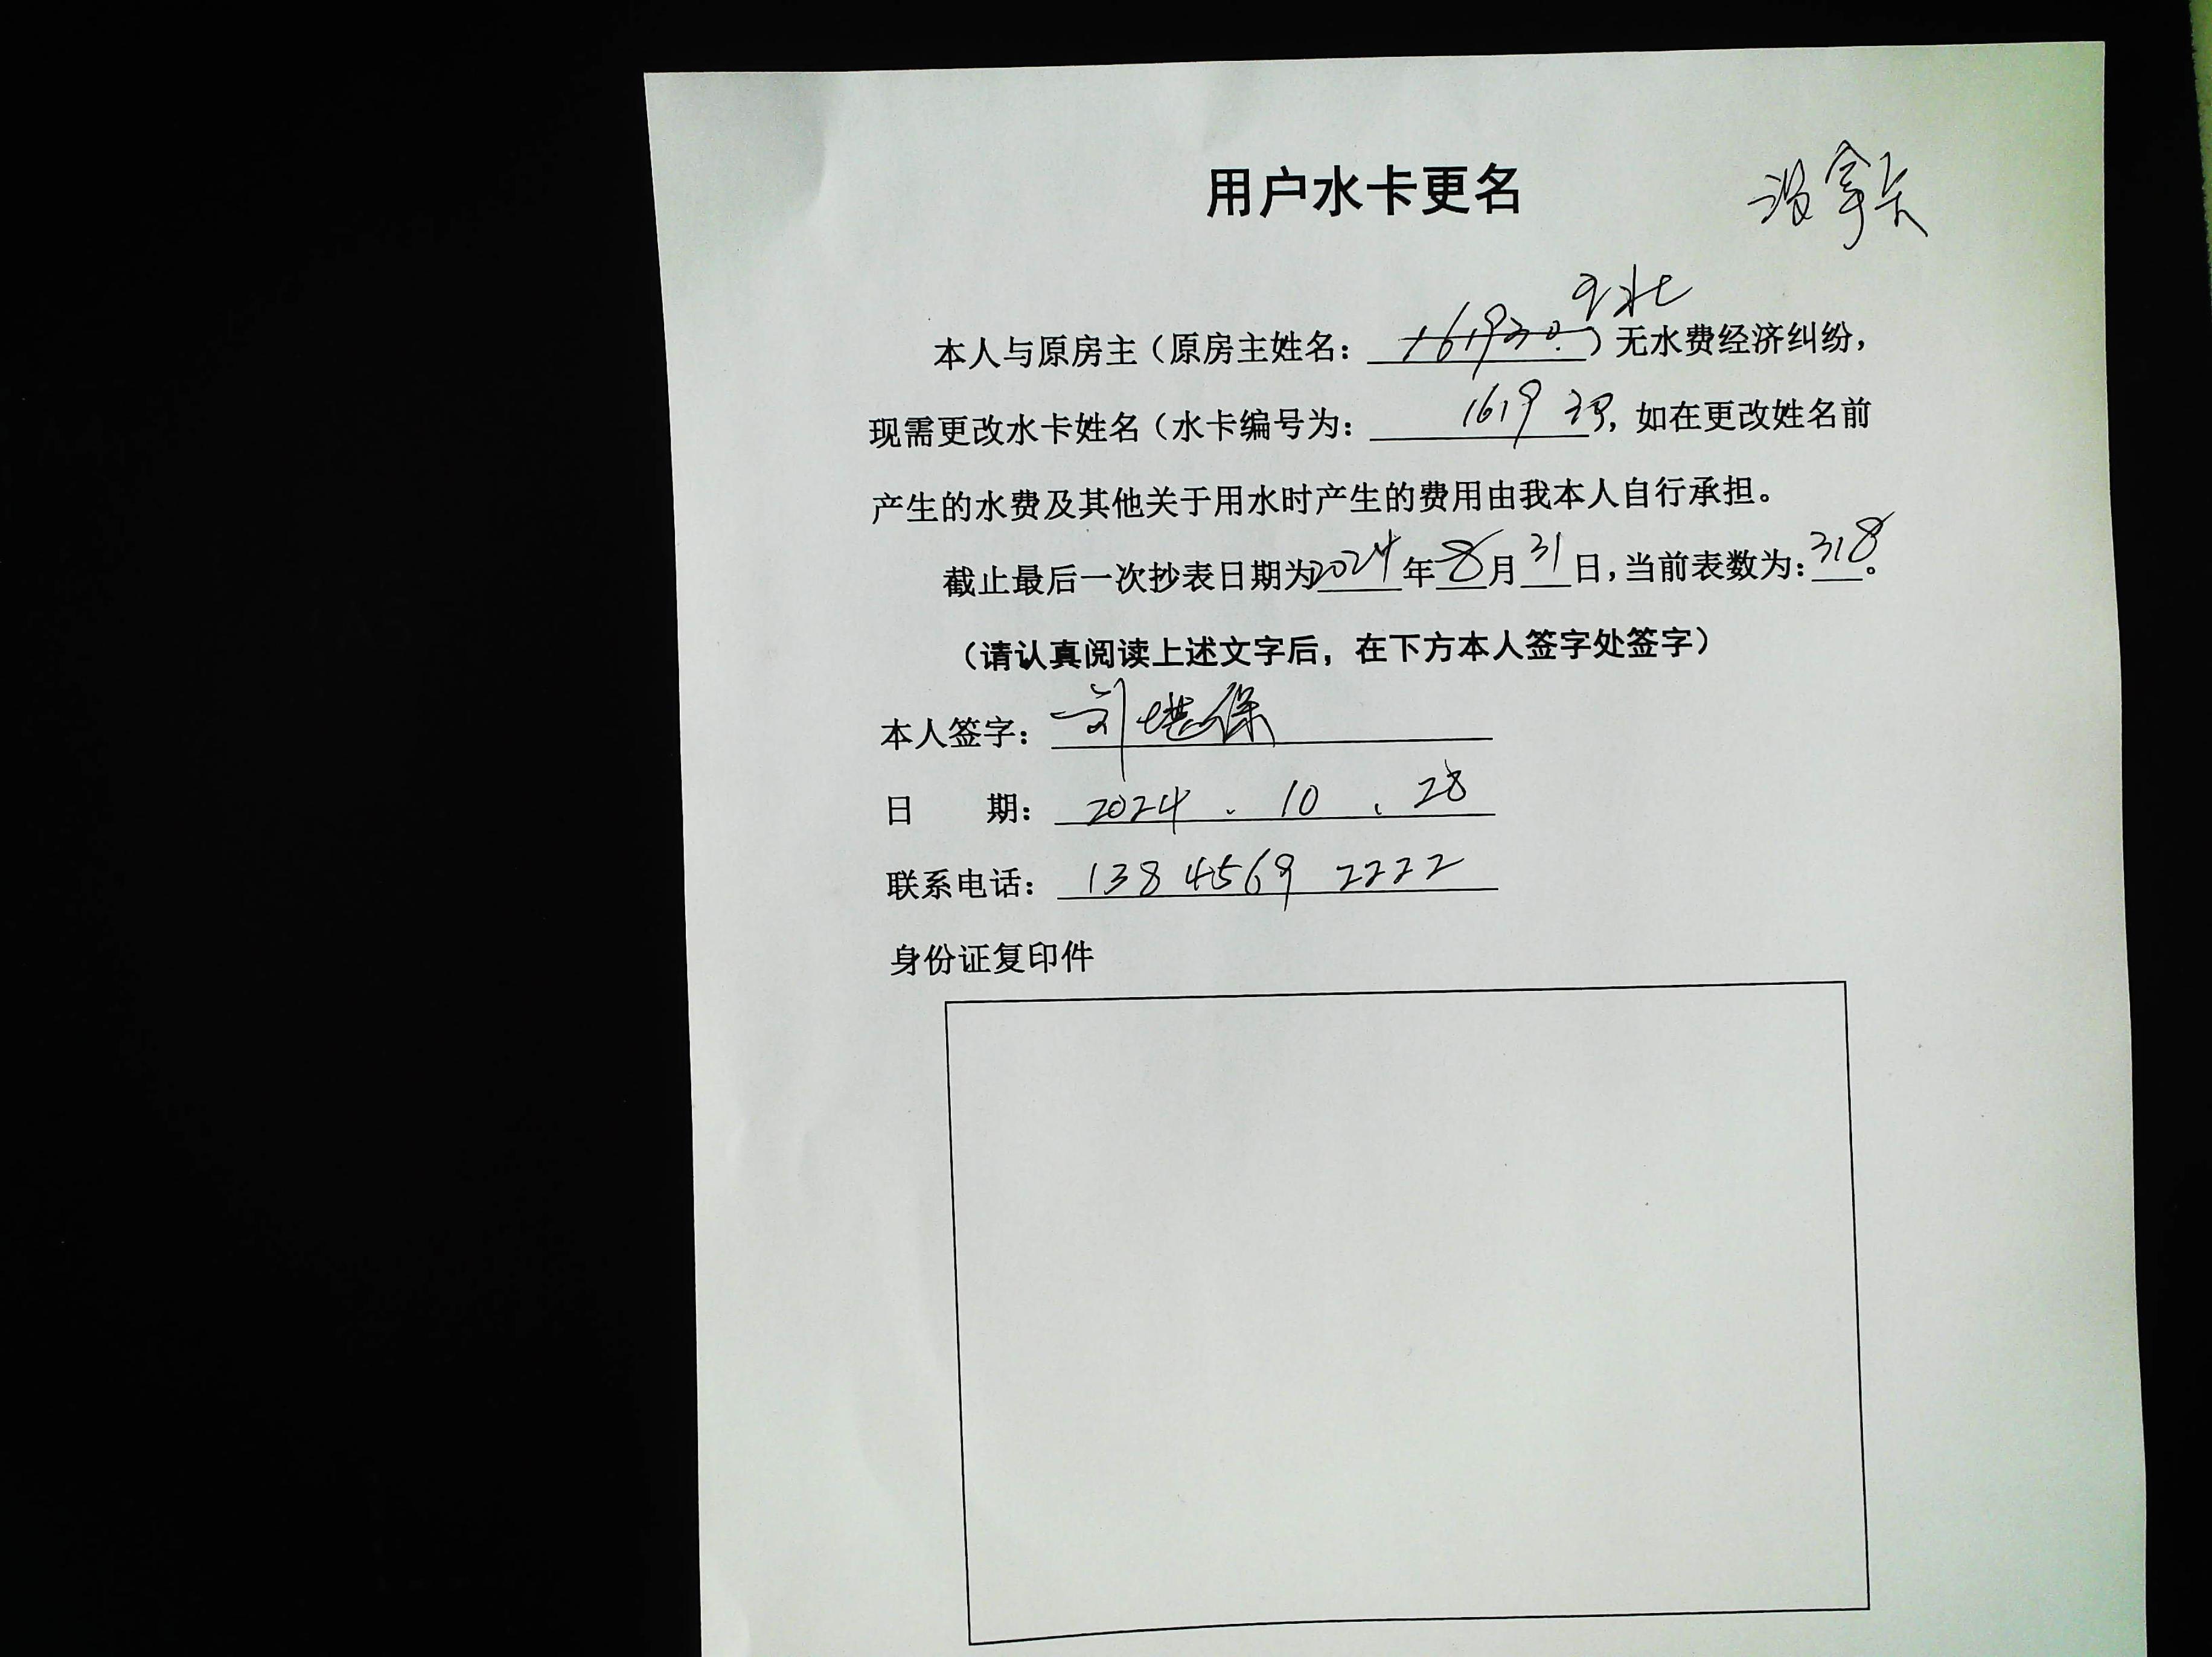 用户水卡更名
没拿卡
本人与原房主（原房主姓名：）无水费经济纠纷，
现需更改水卡姓名（水卡编号为：1619），如在更改姓名前
产生的水费及其他关于用水时产生的费用由我本人自行承担。
截止最后一次抄表日期为2024年8月31日，当前表数为：318。
（请认真阅读上述文字后，在下方本人签字处签字）
本人签字：刘堪保
日 期：2024.10.28
联系电话：138 4569 2222
身份证复印件